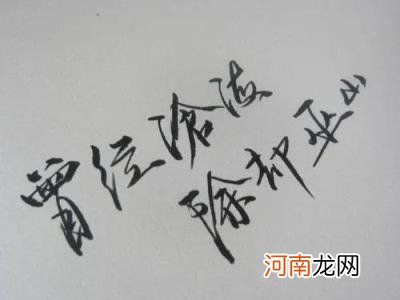 曾经沧海
除却巫山
河南龙网